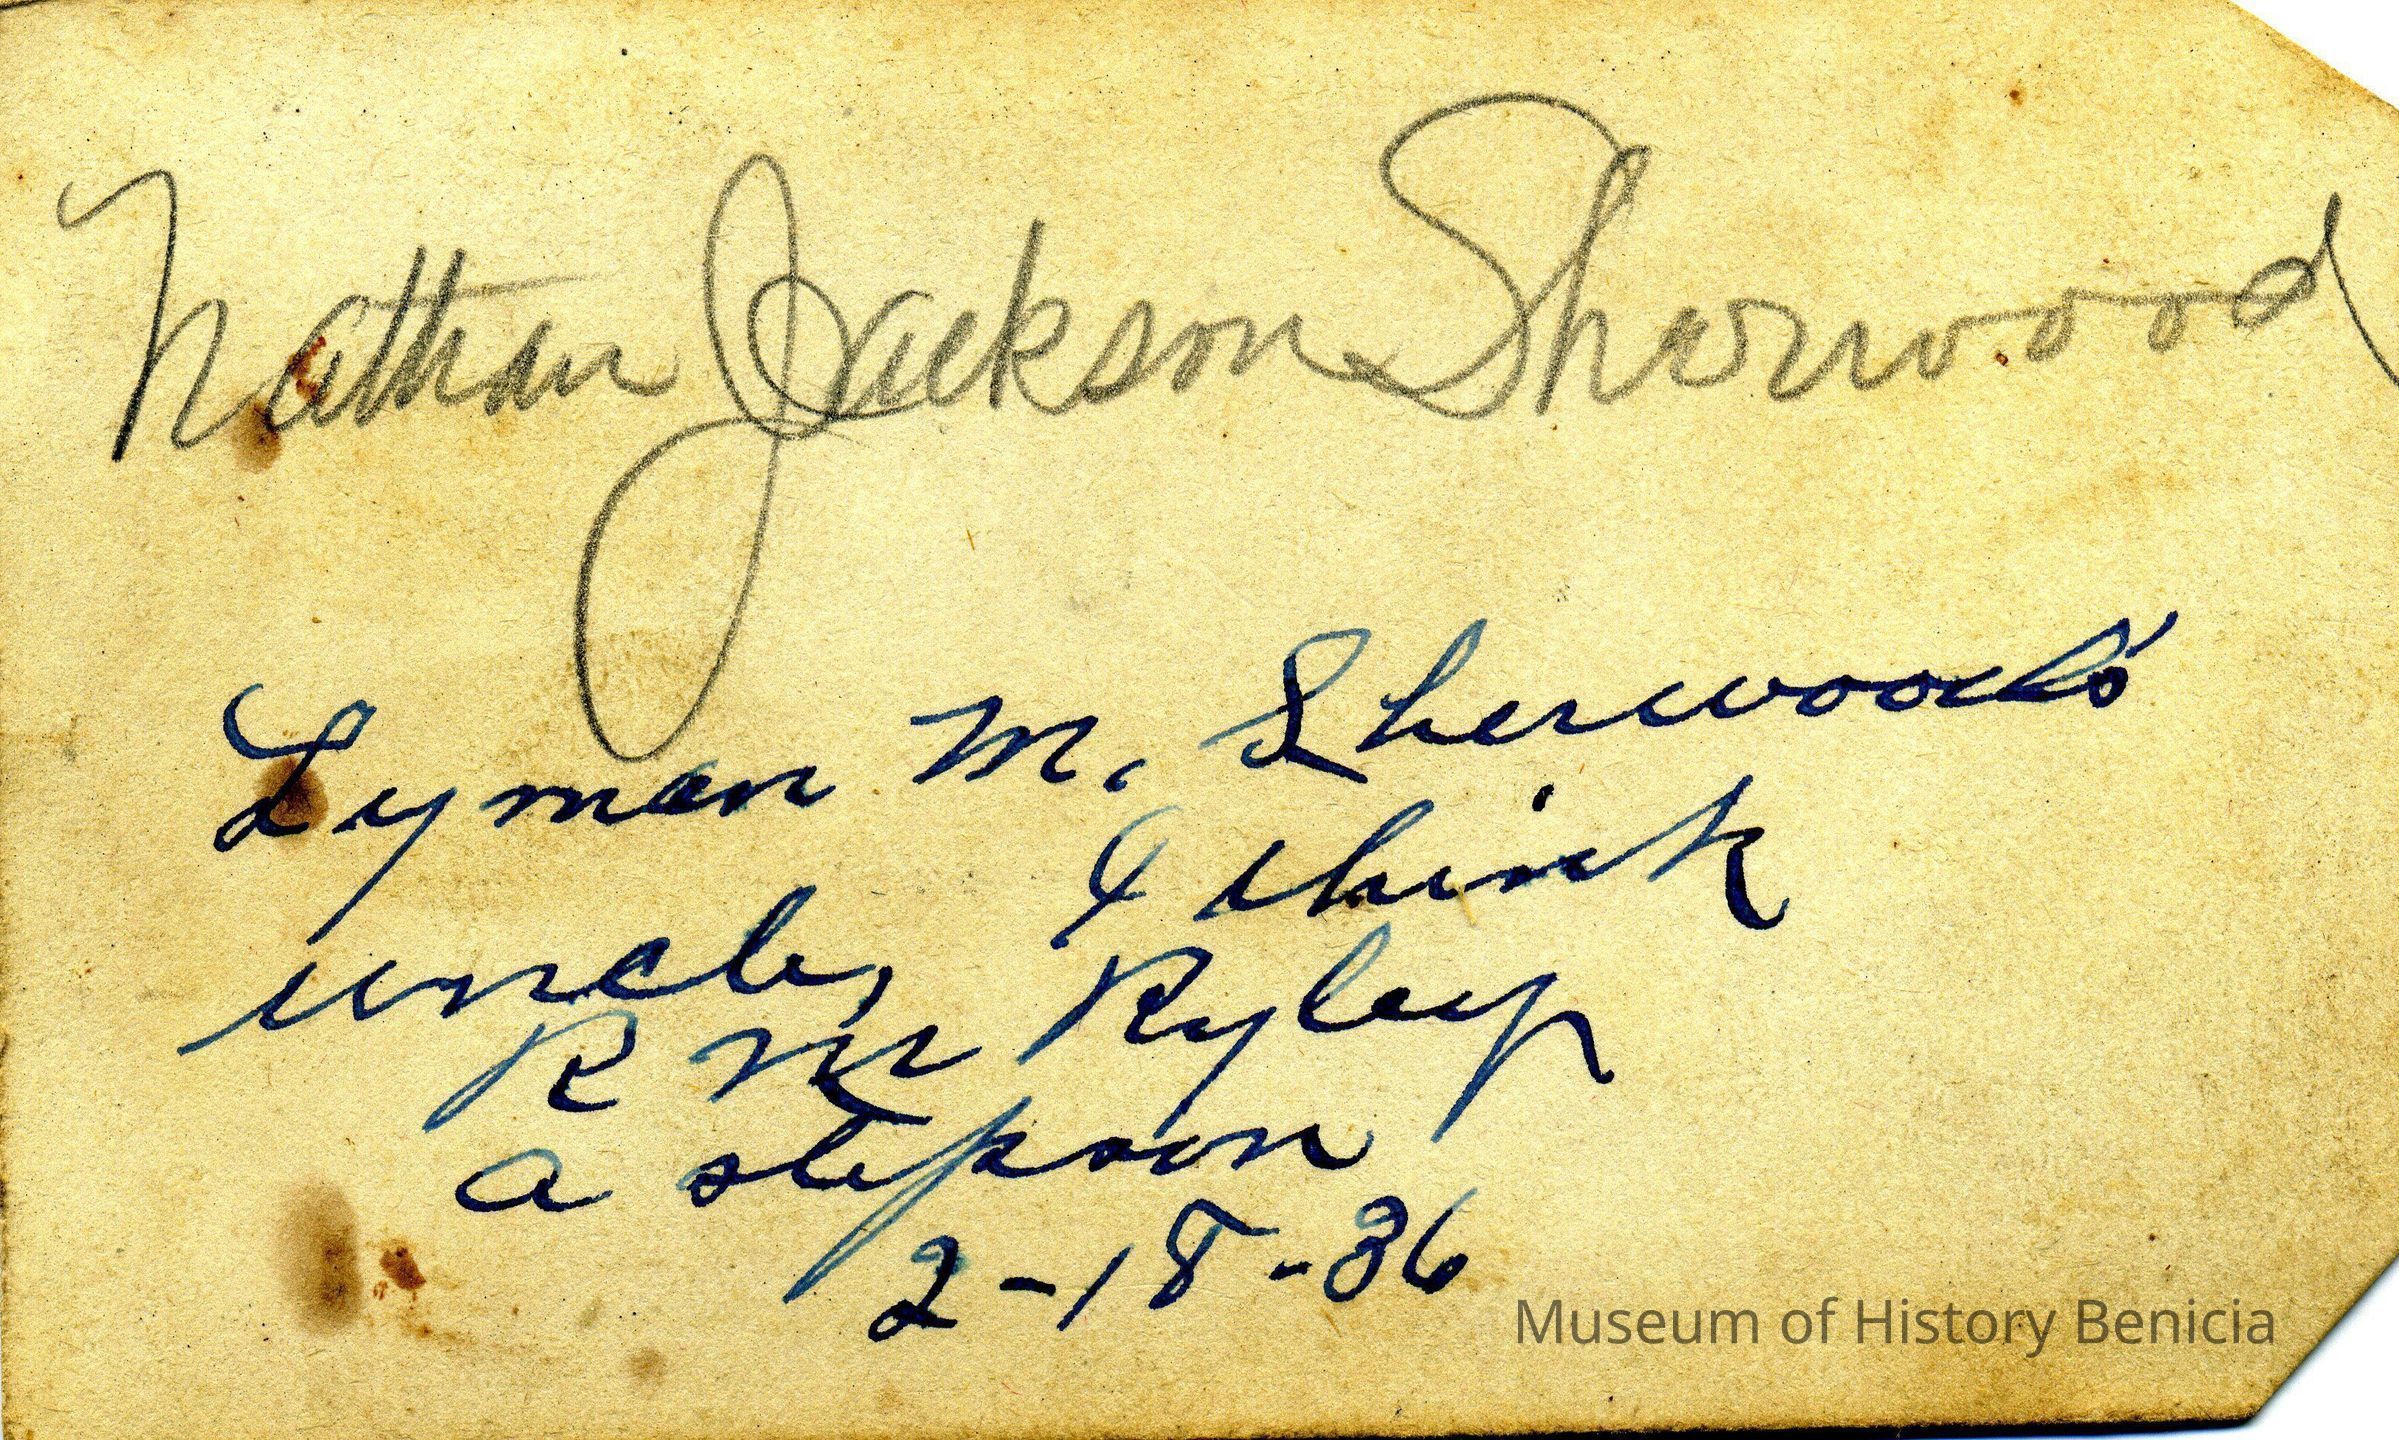 Nathan Jackson Sherwood
Lyman M. Sherwood's
uncle, I think
R Ryley
a stepson
2-18-36
Museum of History Benicia